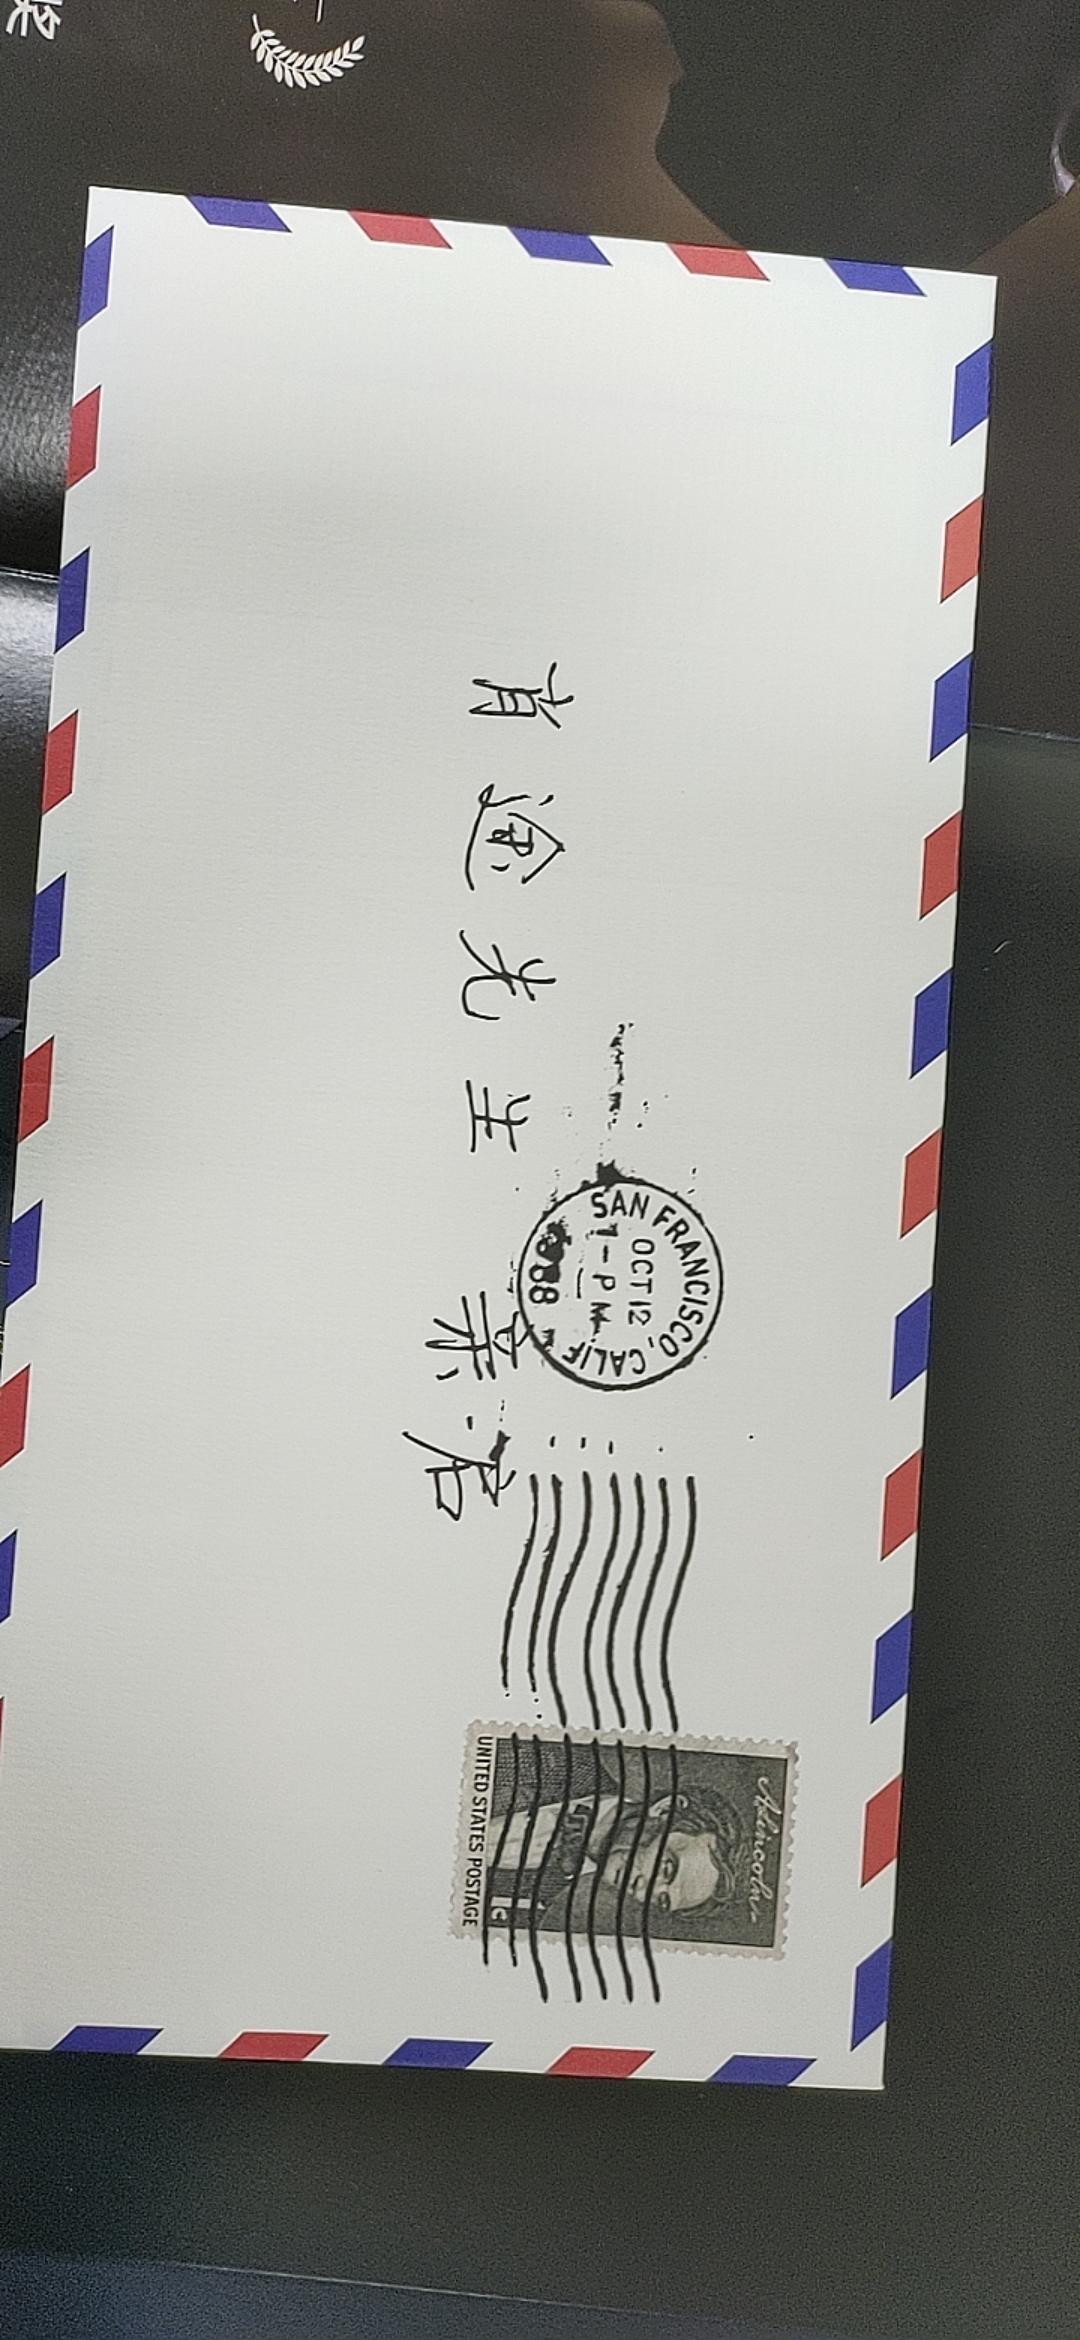 奖
肖途先生 亲启
SAN FRANCISCO, CALIF.
OCT 12
PM
A. Lincoln
UNITED STATES POSTAGE